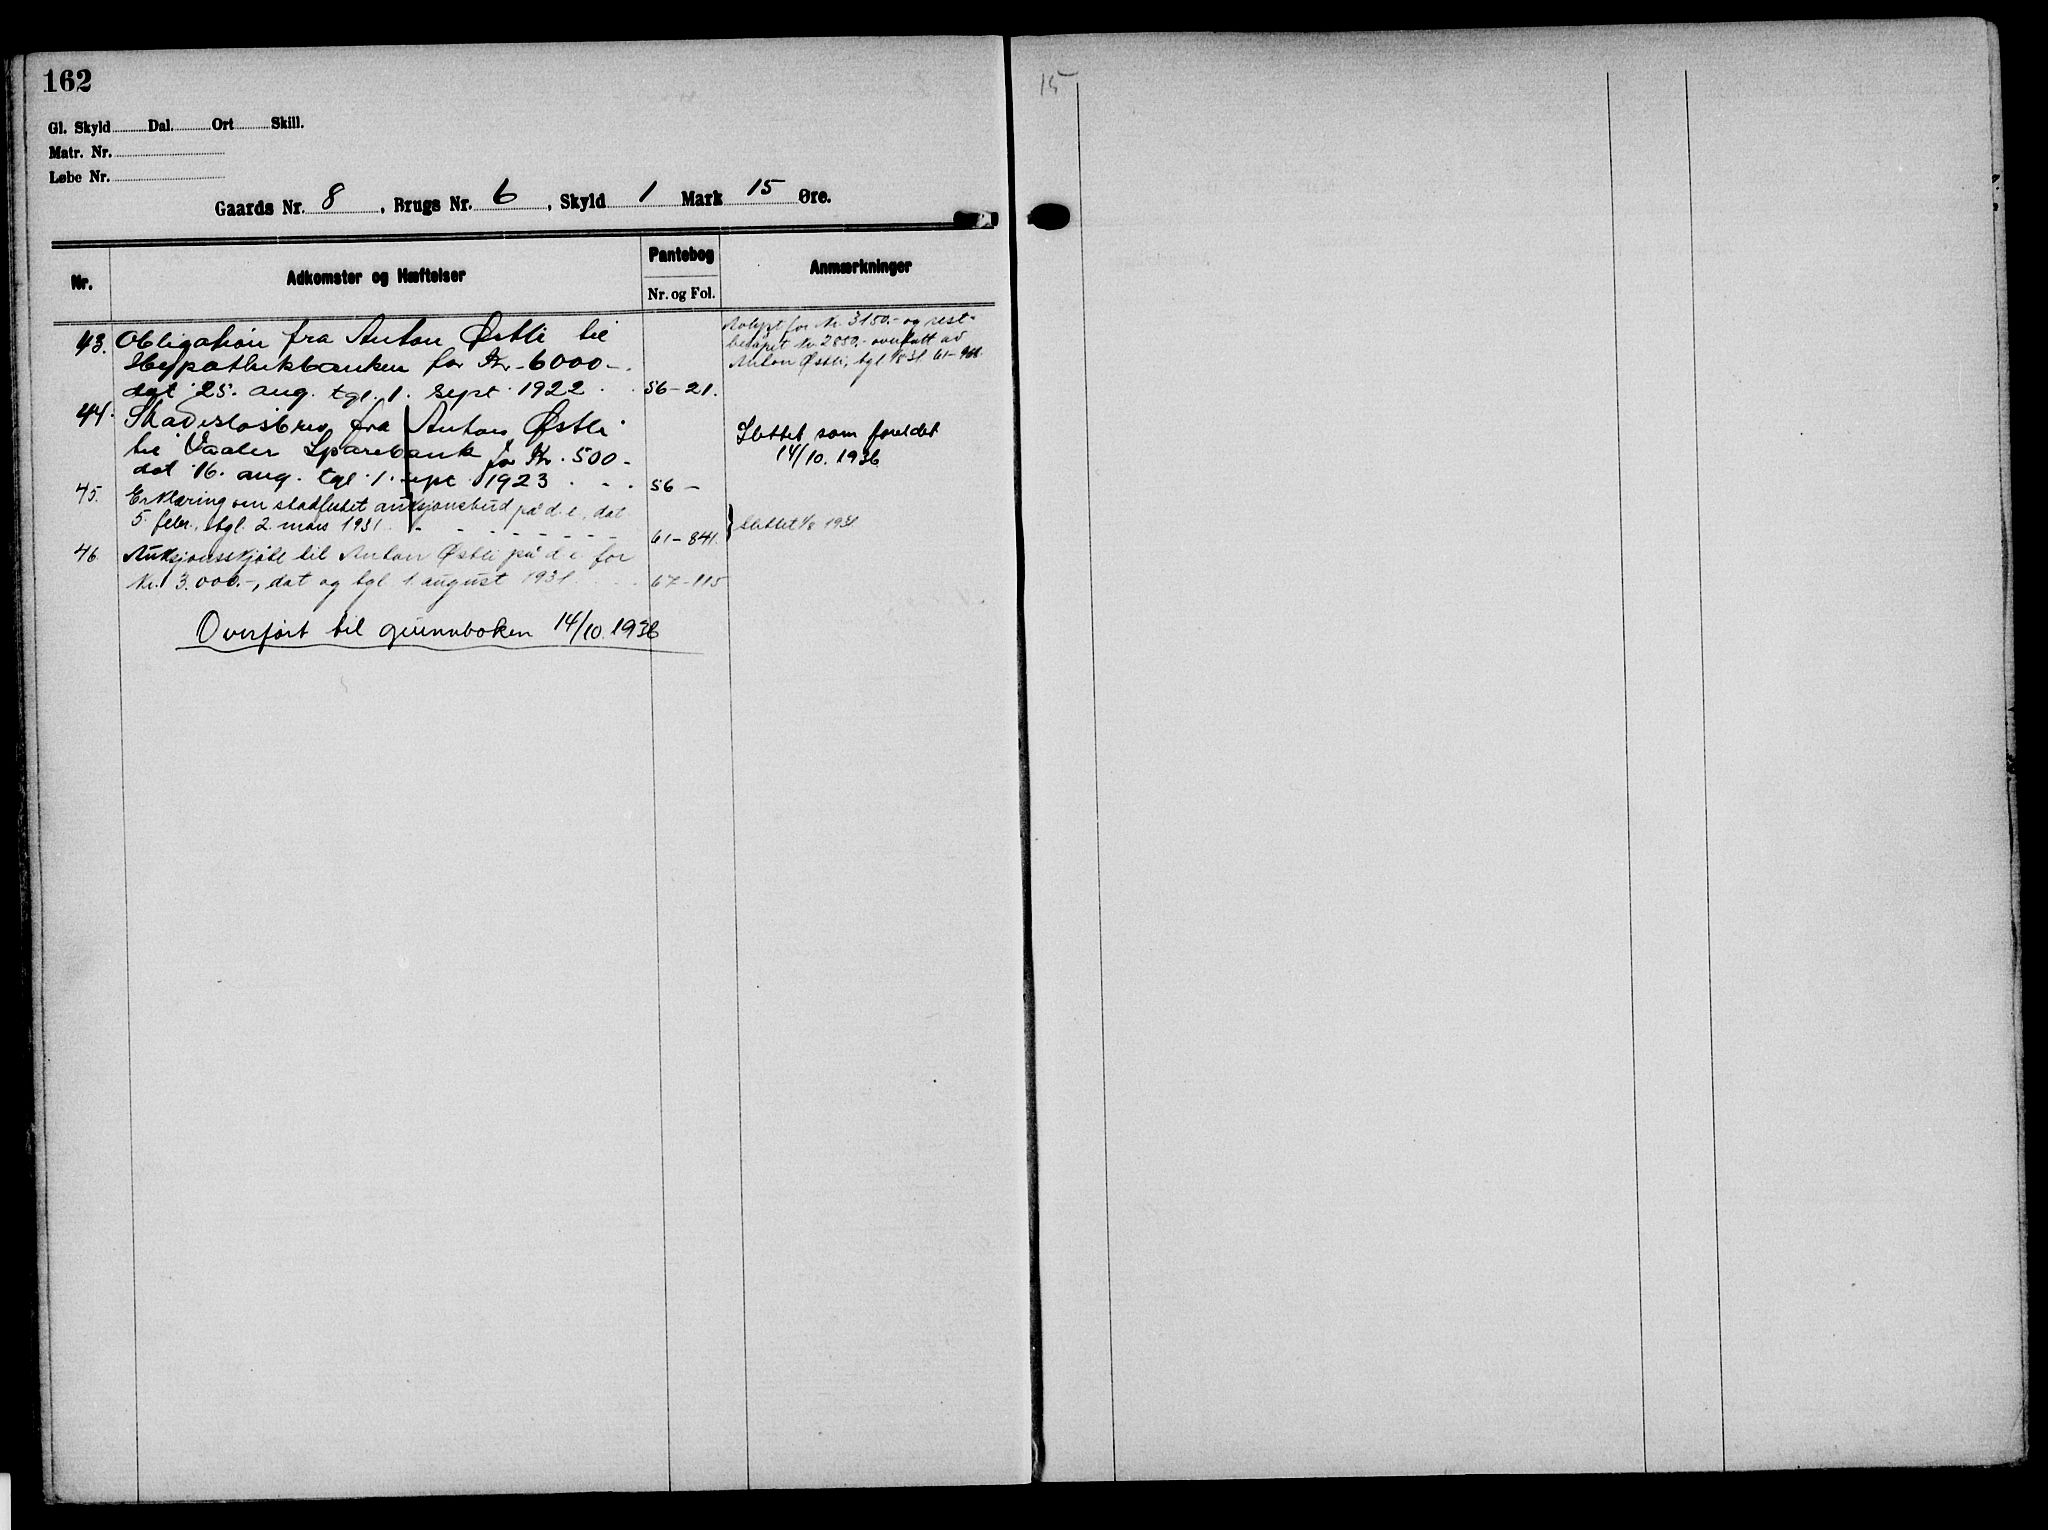 162
Gl. Skyld Dal. Ort Skill.
Matr. Nr.
Løbe Nr.
Gaards Nr. 8, Brugs Nr. 6, Skyld 1 Mark 15 Øre.
Nr. Adkomster og Hæftelser Pantebog Nr. og Fol. Anmærkninger
43. Obligation fra Anton Østli til
Hypothekbanken for Kr. 6000.-
dat 25. aug. tgl. 1. sept. 1922 56-21.
Avlyst for Kr. 3150.- og rest-
beløpet Kr. 2850.- overtatt av
Anton Østli, tgl 1/8 31 61-
44. Skadesløsbrev fra Anton Østli
til Vaaler Sparebank for Kr. 500-
dat 16. aug. tgl. 1. sept 1923 56-
Slettet som foreldet
14/10. 1936
45. Erklæring om stadfestet auksjonsbud på d. e., dat.
5. febr., tgl. 2. mars 1931. 61-841.
Slettet 1/8 1931.
46 Auksjonsskjøte til Anton Østli på d. e for
Kr. 3.000.-, dat og tgl 1 august 1931. 67-115
Overført til grunnboken 14/10. 1936
15